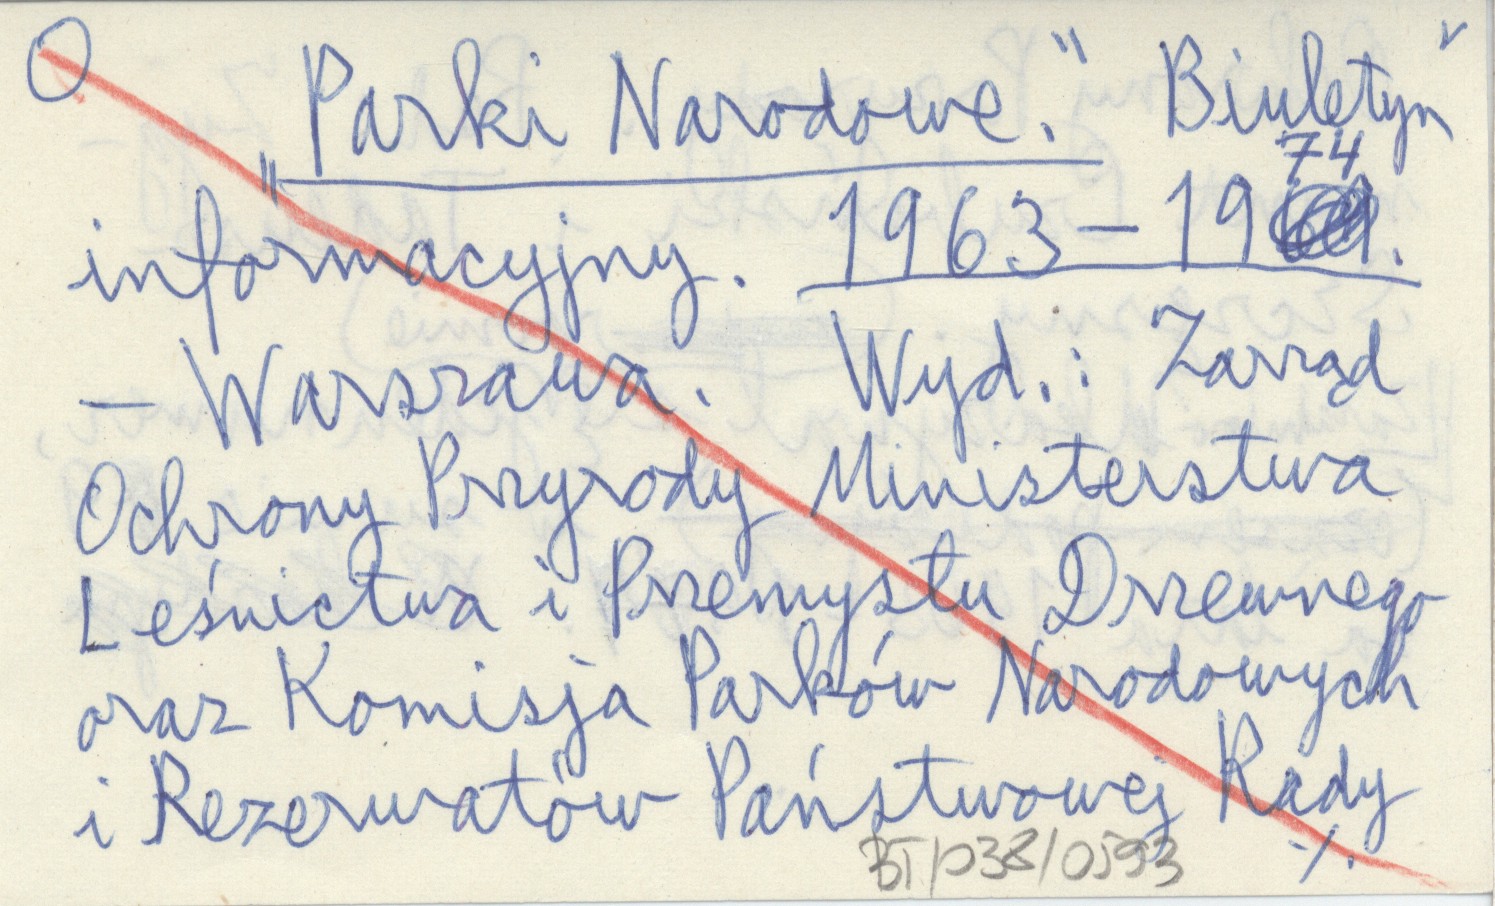 O "Parki Narodowe." Biuletyn
74
informacyjny. 1963-19
- Warszawa. Wyd.: Zarząd
Ochrony Przyrody Ministerstwa
Leśnictwa i Przemysłu Drzewnego
oraz Komisja Parków Narodowych
i Rezerwatów Państwowej Rady
./.
BT/038/0593